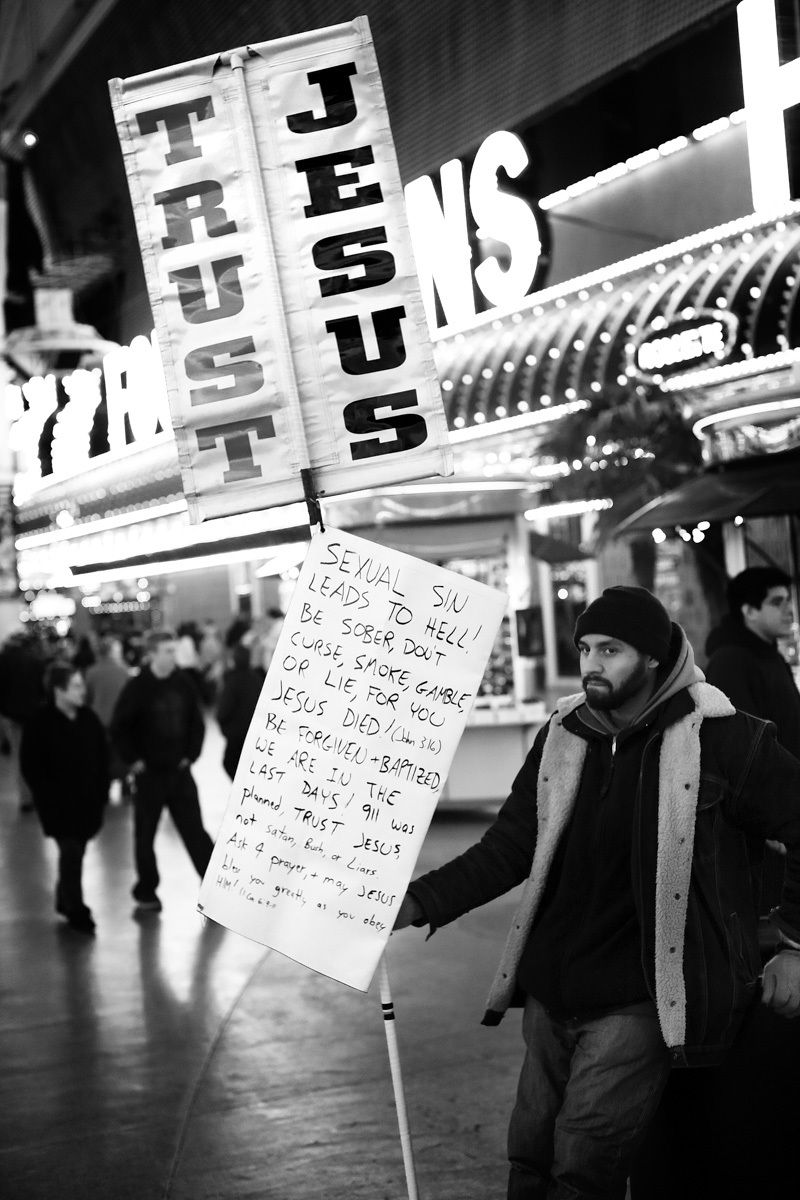 TRUST
JESUS
NS
SEXUAL SIN
LEADS TO HELL!
BE SOBER, DON'T
CURSE, SMOKE, GAMBLE,
OR LIE, FOR YOU
JESUS DIED! (John 3:16)
BE FORGIVEN + BAPTIZED,
WE ARE IN THE
LAST DAYS! 911 was
planned, TRUST JESUS,
not satan, Bush, or Liars.
Ask 4 prayer, + may JESUS
bless you greatly as you obey
HIM!